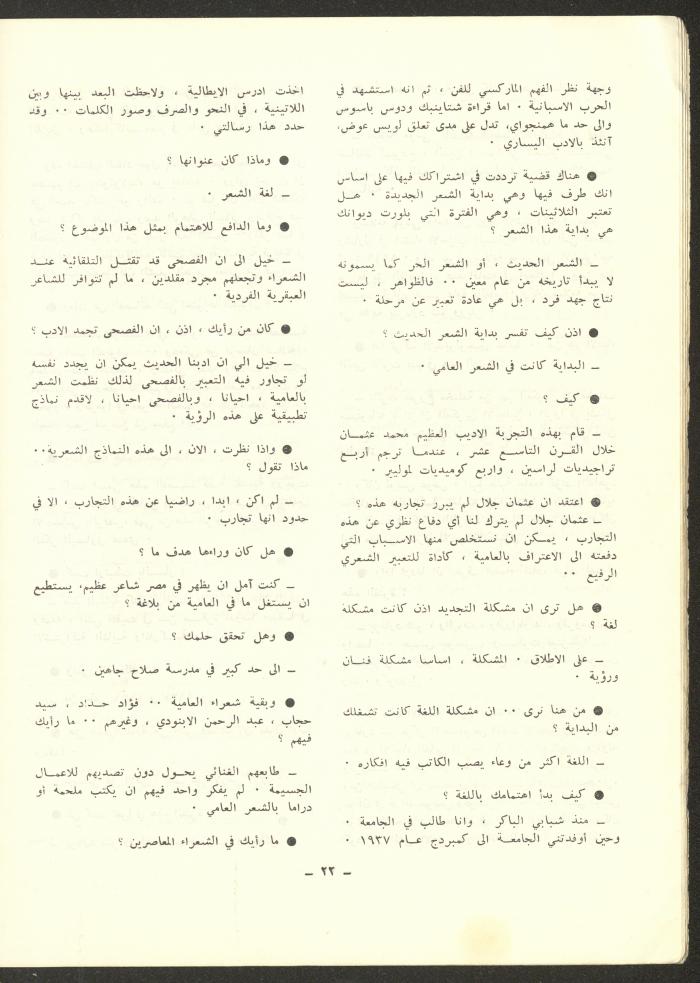 وجهة نظر الفهم الماركسي للفن ، ثم انه استشهد في
الحرب الاسبانية ٠ اما قراءة شتاينبك ودوس باسوس
والى حد ما همنجواي، تدل على مدى تعلق لويس عوض،
آنئذ بالادب اليساري ٠
● هناك قضية ترددت في اشتراكك فيها على اساس
انك طرف فيها وهي بداية الشعر الجديدة ٠ هـل
تعتبر الثلاثينات ، وهي الفترة التي بلورت ديوانك
هي بداية هذا الشعر ؟
ـ الشعر الحديث ، أو الشعر الحر كما يسمونه
لا يبدأ تاريخه من عام معين ٠٠ فالظواهر ، ليست
نتاج جهد فرد ، بل هي عادة تعبير عن مرحلة ٠
● اذن كيف تفسر بداية الشعر الحديث ؟
ـ البداية كانت في الشعر العامي ٠
● كيف ؟
ـ قام بهذه التجربة الاديب العظيم محمد عثمـان
خلال القـرن التاسـع عشر ، عندمـا ترجم أربـع
تراجيديات لراسين ، واربع كوميديات لموليير ٠
● اعتقد ان عثمان جلال لم يبرر تجاربه هذه ؟
ـ عثمان جلال لم يترك لنا أي دفاع نظري عن هذه
التجارب ، يمـكن ان نستخلص منها الاسـباب التي
دفعته الى الاعتراف بالعامية ، كأداة للتعبير الشعري
الرفيع ٠٠
● هل ترى ان مشكلة التجديد اذن كانت مشكلة
لغة ؟
ـ على الاطلاق ٠ المشكلة ، اساسا مشكلة فنـان
ورؤية ٠
● من هنا نرى ٠٠ ان مشكلة اللغة كانت تشغلك
من البداية ؟
ـ اللغة اكثر من وعاء يصب الكاتب فيه افكاره ٠
● كيف بدأ اهتمامك باللغة ؟
ـ منذ شبابي الباكر ، وانا طالب في الجامعة ٠
وحين أوفدتني الجامعـة الى كمبردج عـام ١٩٣٧ ٠
اخذت ادرس الايطالية ، ولاحظت البعد بينها وبين
اللاتينية ، في النحو والصرف وصور الكلمات ٠٠ وقد
حدد هذا رسالتي ٠
● وماذا كان عنوانها ؟
ـ لغة الشعر ٠
● وما الدافع للاهتمام بمثل هذا الموضوع ؟
ـ خيل الى ان الفصحى قد تقتـل التلقائية عنـد
الشعراء وتجعلهم مجرد مقلدين ، ما لم تتوافر للشاعر
العبقرية الفردية ٠
● كان من رأيك ، اذن ، ان الفصحى تجمد الادب ؟
ـ خيل الي ان ادبنا الحديث يمكن ان يجدد نفسه
لو تجاور فيه التعبير بالفصحى لذلك نظمت الشعر
بالعامية ، احيانا ، وبالفصحى احيانا ، لاقدم نماذج
تطبيقية على هذه الرؤية ٠
● واذا نظرت ، الان ، الى هذه النماذج الشعرية٠٠
ماذا تقول ؟
ـ لم اكن ، ابدا ، راضيا عن هذه التجارب ، الا في
حدود انها تجارب ٠
● هل كان وراءها هدف ما ؟
ـ كنت آمل ان يظهر في مصر شاعر عظيم، يستطيع
ان يستغل ما في العامية من بلاغة ؟
● وهل تحقق حلمك ؟
ـ الى حد كبير في مدرسة صلاح جاهين ٠
● وبقية شعراء العامية ٠٠ فؤاد حـداد ، سيد
حجاب ، عبد الرحمن الابنودي ، وغيرهم ٠٠ ما رأيك
فيهم ؟
ـ طابعهم الغنائي يحـول دون تصديهم للاعمـال
الجسيمة ٠ لم يفكر واحد فيهم ان يكتب ملحمة أو
دراما بالشعر العامي ٠
● ما رأيك في الشعراء المعاصرين ؟
ـ ٢٢ ـ